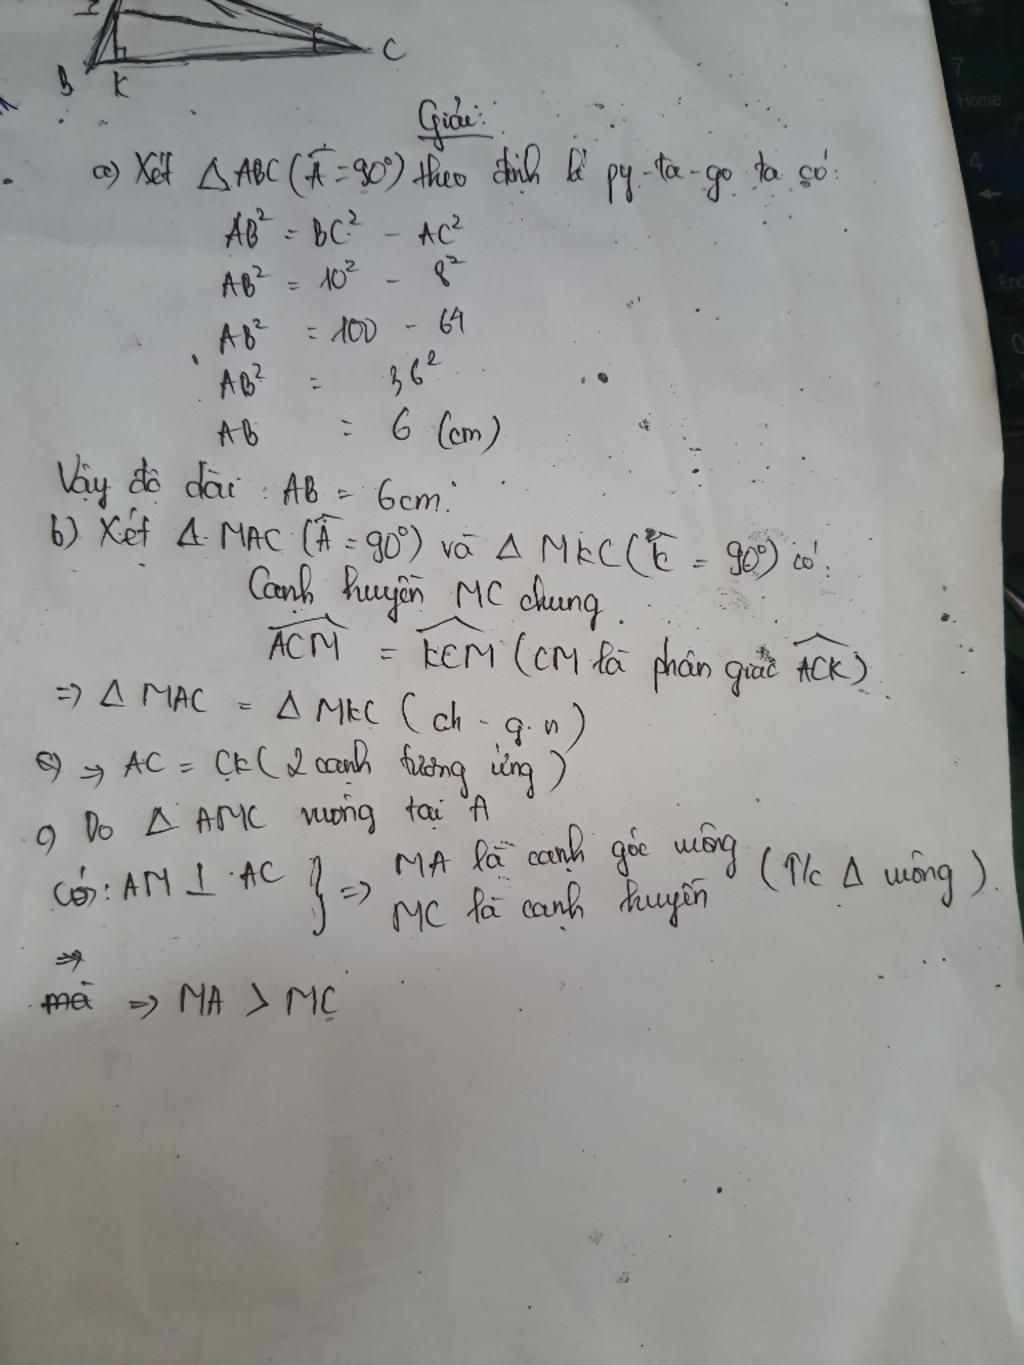 B K C
Giải:
a) Xét Δ ABC (Â = 90°) theo định lí py-ta-go ta có:
AB² = BC² - AC²
AB² = 10² - 8²
AB² = 100 - 64
AB² = 36²
AB = 6 (cm)
Vậy độ dài : AB = 6cm.
b) Xét Δ MAC (Â = 90°) và Δ MKC (K̂ = 90°) có:
Cạnh huyền MC chung
ACM = KCM (CM là phân giác ACK)
=> Δ MAC = Δ MKC (ch - g.n)
=> AC = CK (2 cạnh tương ứng)
c) Do Δ AMC vuông tại A
Có: AM ⊥ AC } => MA là cạnh góc vuông (T/c Δ vuông).
MC là cạnh huyền
=>
mà => MA > MC
7
Home
4
←
1
0